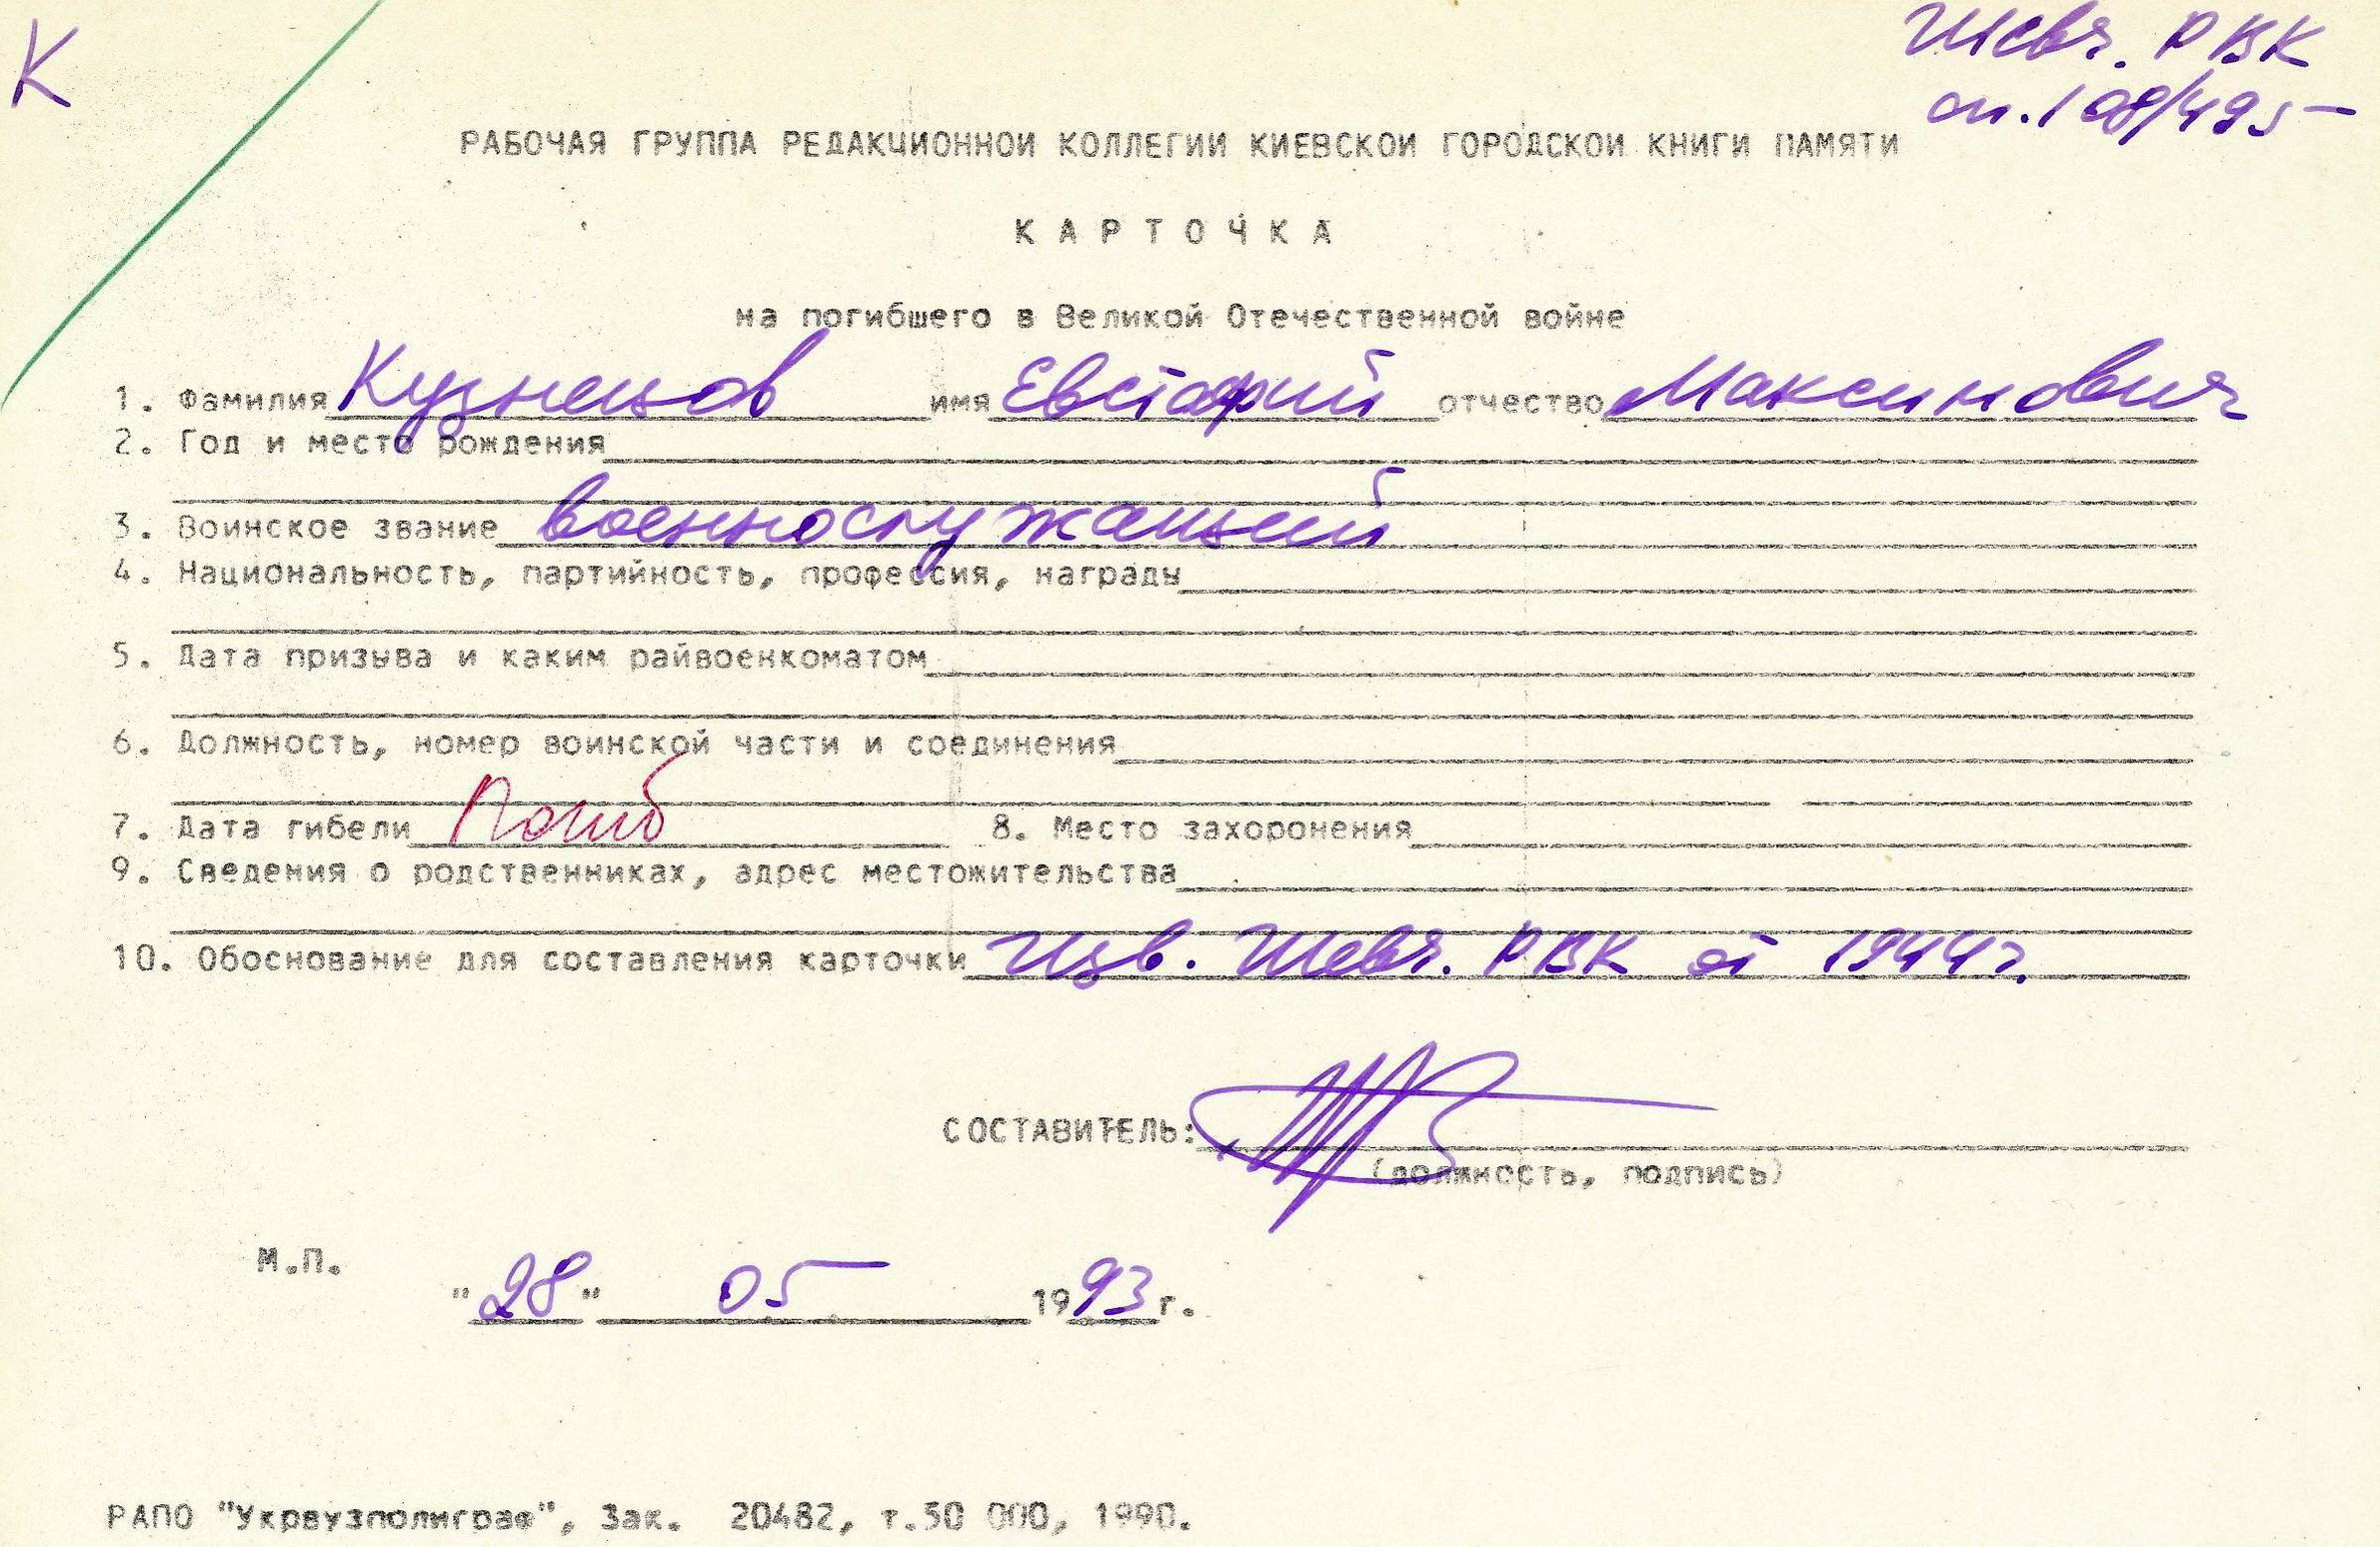 К
Шевч. РВК
оп.108/495
РАБОЧАЯ ГРУППА РЕДАКЦИОННОЙ КОЛЛЕГИИ КИЕВСКОЙ ГОРОДСКОЙ КНИГИ ПАМЯТИ
КАРТОЧКА
на погибшего в Великой Отечественной войне
1. Фамилия Кузнецов имя Евстафий отчество Максимович
2. Год и место рождения
3. Воинское звание военнослужащий
4. Национальность, партийность, профессия, награды
5. Дата призыва и каким райвоенкоматом
6. Должность, номер воинской части и соединения
7. Дата гибели Погиб 8. Место захоронения
9. Сведения о родственниках, адрес местожительства
10. Обоснование для составления карточки Изв. Шевч. РВК от 1944г.
СОСТАВИТЕЛЬ:
(должность, подпись)
М.П.
"28" 05 1993г.
РАПО "Укрвузполиграф", Зак. 20482, т.50 000, 1990.